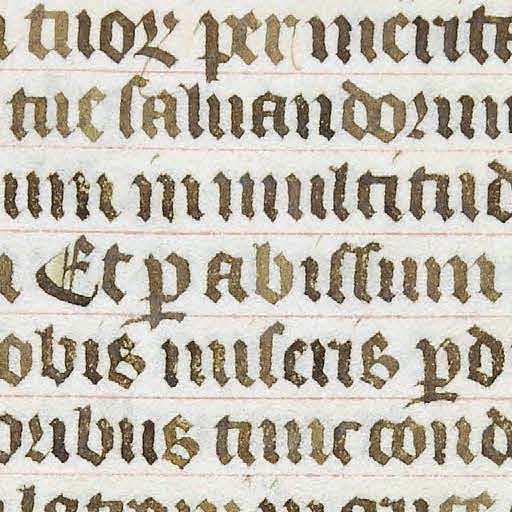 tuoꝝ per merite
tue saluandorum
um in multitud
Et ꝑ abissum
obis miseris ꝑd
oribus tunc cond